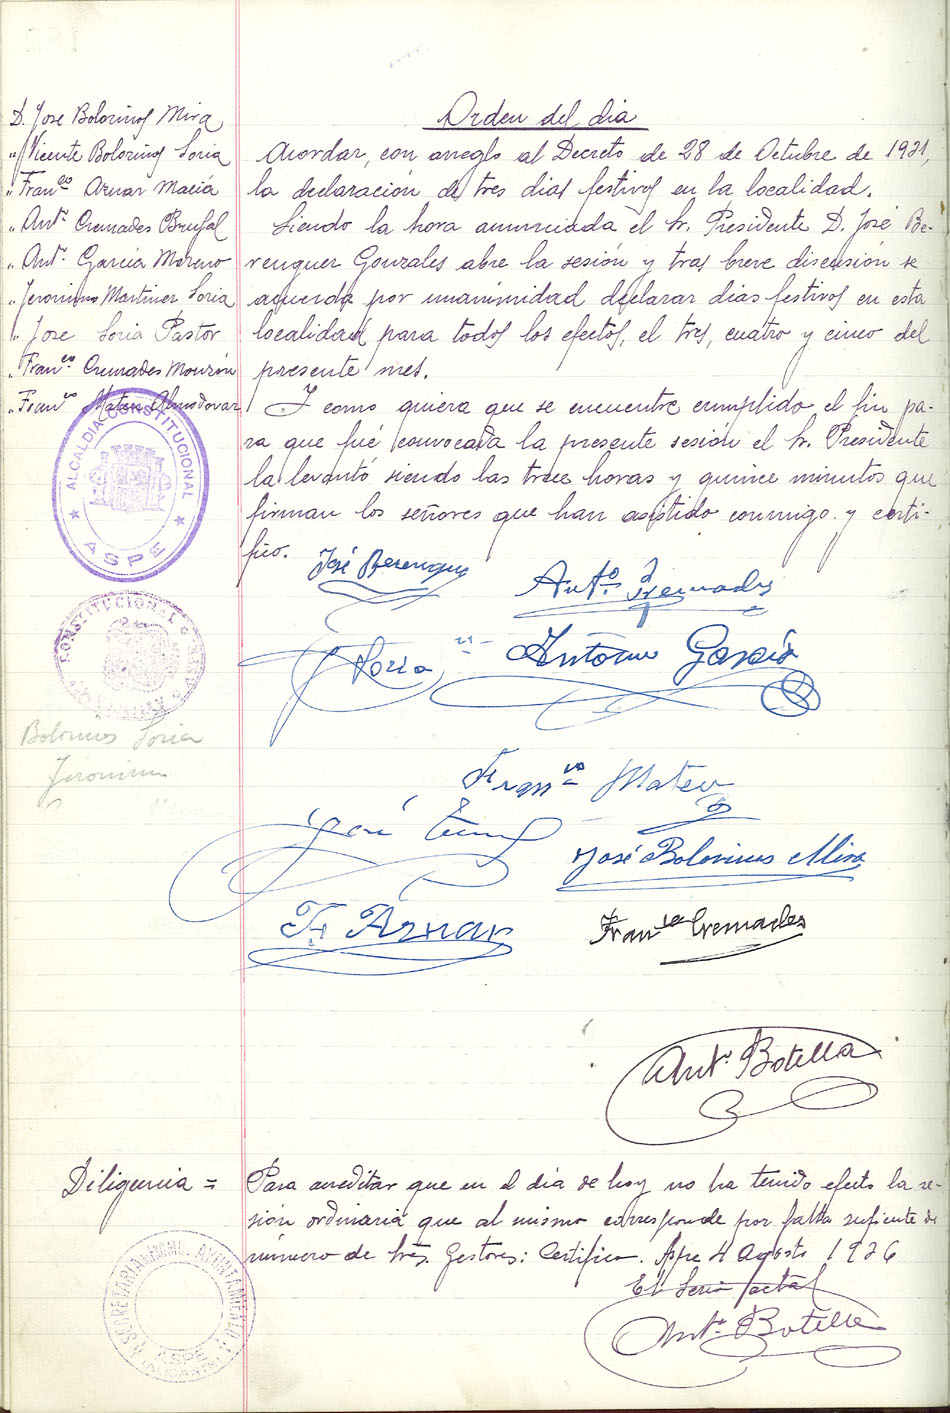 D. Jose Bolorinos Mira
" Vicente Bolorinos Soria
" Fran.co Aznar Maciá
" Ant.o Cremades Brufal
" Ant.o García Moreno
" Jeronimo Martinez Soria
" Jose Soria Pastor
" Fran.co Cremades Mourón
" Fran.co Mateu Almodovar
ALCALDIA CONSTITUCIONAL
ASPE
CONSTITUCIONAL
Bolorinos Soria
Jeronimo
Orden del dia
Acordar, con arreglo al Decreto de 28 de Octubre de 1931,
la declaración de tres dias festivos en la localidad.
Siendo la hora anunciada el Sr. Presidente D. José Be-
renguer Gonzales abre la sesión y tras breve discusión se
acuerda por unanimidad declarar dias festivos en esta
localidad para todos los efectos, el tres, cuatro y cinco del
presente mes.
Y como quiera que se encuentre cumplido el fin pa-
ra que fué convocada la presente sesión el Sr. Presidente
la levantó siendo las trece horas y quince minutos que
firman los señores que han asistido conmigo y certi-
fico.
José Berenguer
Ant.o Cremades
Soria
Antonio García
Fran.co Mateu
José
José Bolorinos Mira
F. Aznar
Fran.co Cremades
Ant.o Botella
Diligencia =
Para acreditar que en el dia de hoy no ha tenido efecto la se-
sión ordinaria que al mismo corresponde por falta suficiente de
número de Sres. Gestores: Certifico. Aspe 4 Agosto 1936
El Secrio actal
Ant.o Botella
SECRETARIA AYUNTAMIENTO
ASPE
(ALICANTE)